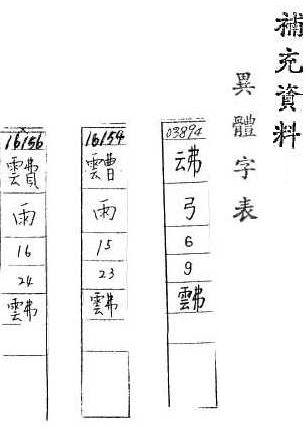 補充資料
異體字表
03894
弓
6
9
16154
雨
15
23
16156
靅
雨
16
24